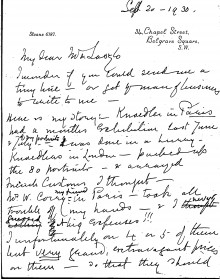 Sept 20 - 1930.
Sloane 6187.
34, Chapel Street,
Belgrave Square,
S.W.
My dear Mr
I wonder if you could send me a
tiny line - or get
to write to me -
Here is my story - Knoedler in Paris
had a months Exhibition last June
was done in a hurry -
Knoedlers in London - packed up
the 80 portraits - & arranged
French Customs I thought -
Mr W. Corry in Paris - took all
trouble off my hands - & I
big expenses!!!
I unfortunately on 4 or 5 of them
but very grand, extravagant prices
on them - so that they should